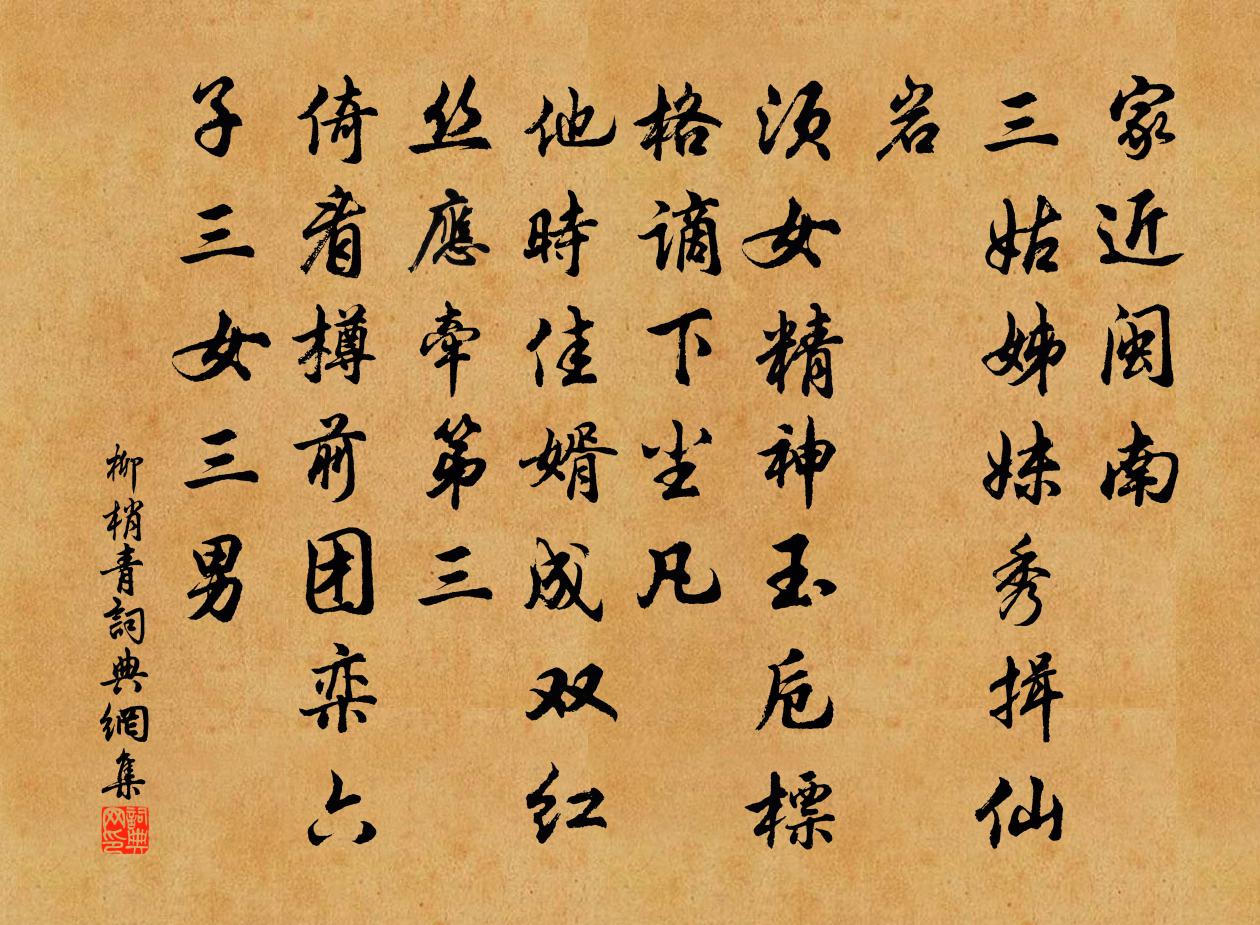 家近闽南
三姑姊妹秀揖仙
岩
须女精神玉卮標
格谪下坐凡
他時佳婿成双红
丝應牵第三
倚看樽前团栾六
子三女三男
柳梢青詞典網集
詞典网印